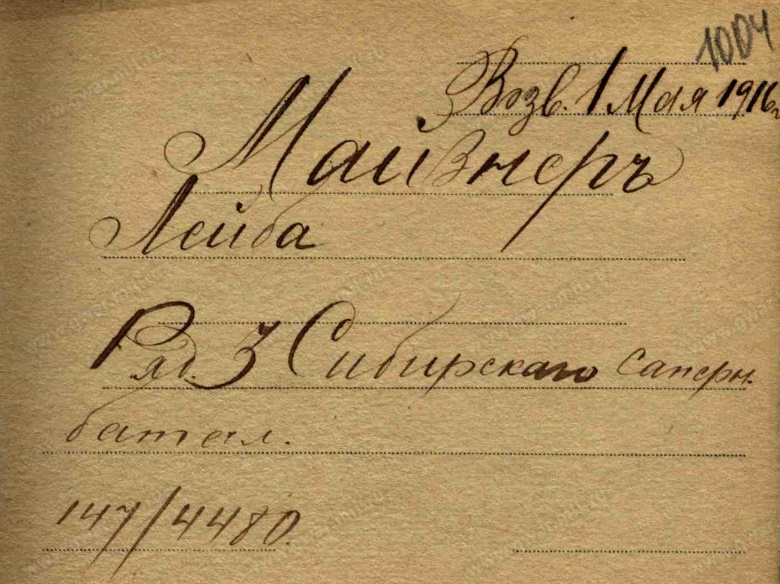 1004
Возв. 1 Мая 1916 г.
Майзнеръ
Лейба
Ряд. 3 Сибирскаго саперн.
батал.
147/4480.